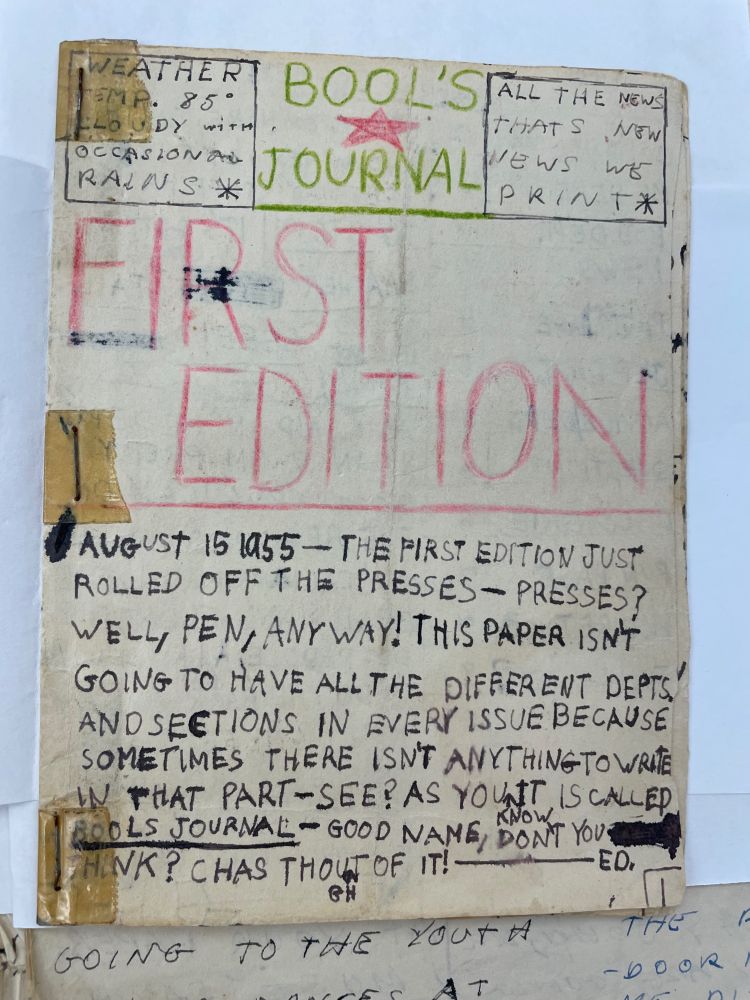 WEATHER
TEMP. 85°
CLOUDY with
OCCASIONAL
RAINS *
BOOL'S
JOURNAL
ALL THE NEWS
THATS NEW
NEWS WE
PRINT *
FIRST
EDITION
AUGUST 15 1955 — THE FIRST EDITION JUST
ROLLED OFF THE PRESSES — PRESSES?
WELL, PEN, ANYWAY! THIS PAPER ISN'T
GOING TO HAVE ALL THE DIFFERENT DEPTS.
AND SECTIONS IN EVERY ISSUE BECAUSE
SOMETIMES THERE ISN'T ANYTHING TO WRITE
IN THAT PART — SEE? AS YOU IT IS CALLED
KNOW
BOOLS JOURNAL — GOOD NAME, DON'T YOU
THINK? CHAS THOUT OF IT! — ED.
GH
1
GOING TO THE YOUTH
THE
-DOOR
DANCES AT